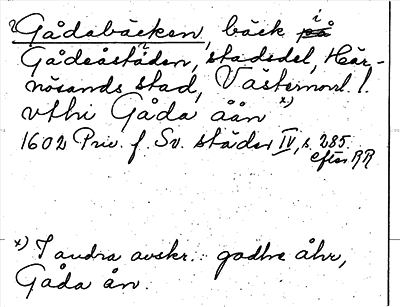 ?Gådabäcken, bäck i
Gådeåstaden, stadsdel, Här-
nösands stad, Västernorrl. l.
vthi Gåda åån x)
1602 Priv. f. Sv. städer IV, s. 285.
efter RR
x) I andra avskr.: godhe åhr,
Gåda ån.